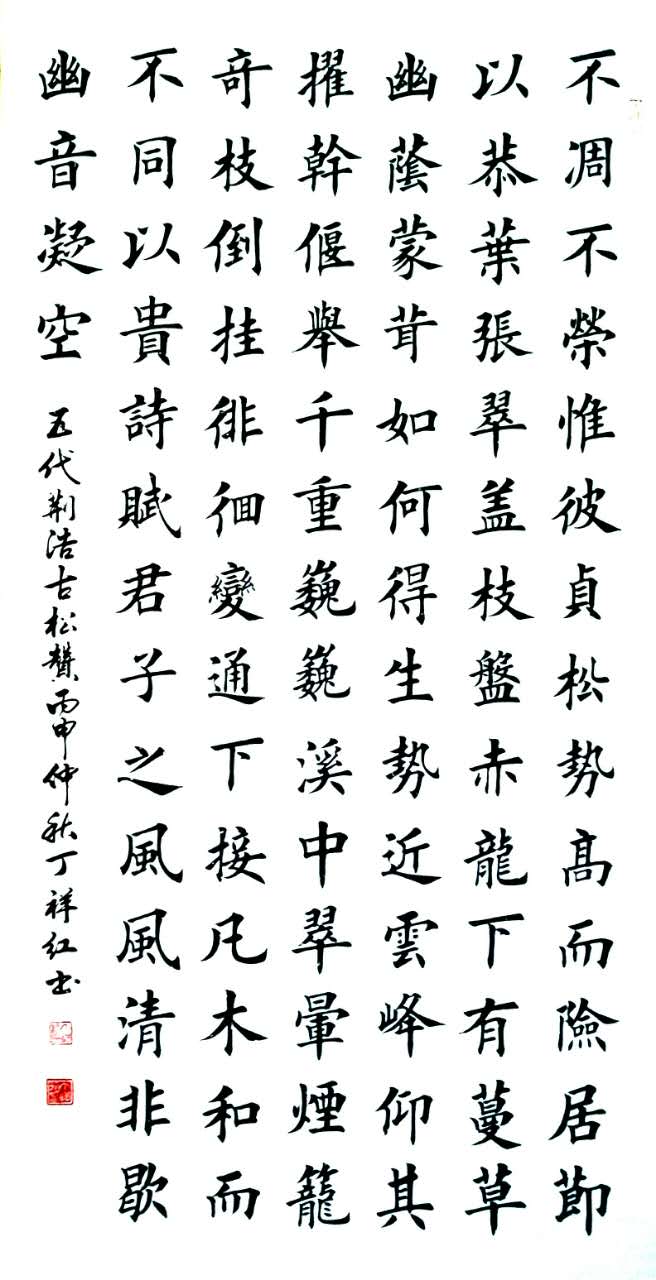 不凋不榮惟彼貞松勢髙而險居節
以恭葉張翠盖枝盤赤龍下有蔓草
幽蔭蒙茸如何得生勢近雲峰仰其
擢幹偃舉千重巍巍溪中翠暈煙籠
竒枝倒挂徘徊變通下接凡木和而
不同以貴詩賦君子之風風清非歇
幽音凝空
五代荆浩古松贊丙申仲秋丁祥红书